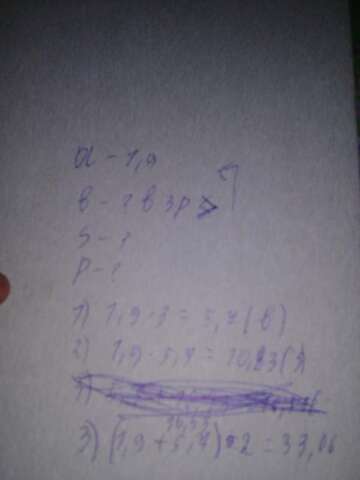 a - 1,9
b - ? в 3р >
S - ?
P - ?
1) 1,9 · 3 = 5,7 (b)
2) 1,9 · 5,7 = 10,83 (S)
3) (1,9 + 5,7) · 2 = 33,06